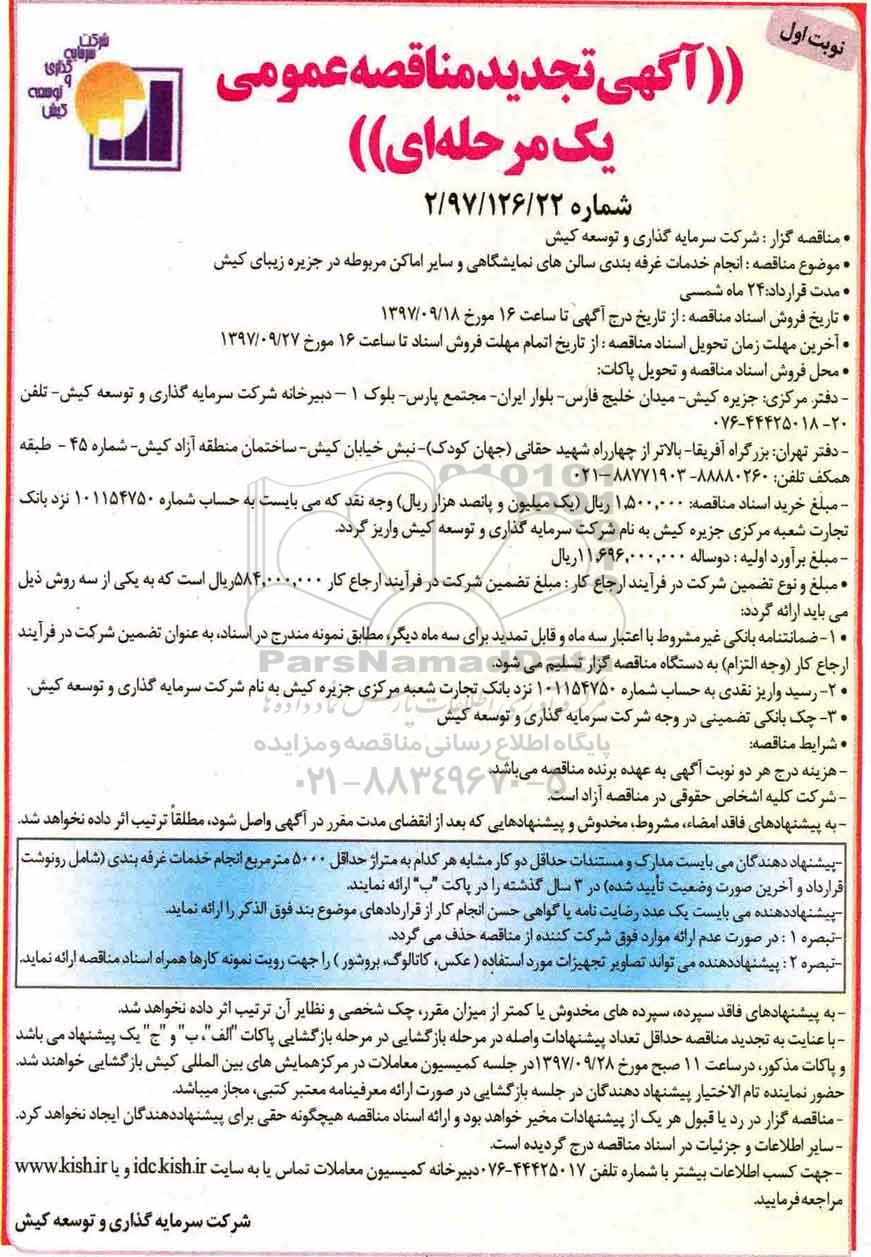 نوبت اول
شرکت
سرمایه
گذاری
و
توسعه
کیش
((آگهی تجدید مناقصه عمومی
یک مرحله‌ای))
شماره ۲/۹۷/۱۲۶/۲۲
• مناقصه گزار : شرکت سرمایه گذاری و توسعه کیش
• موضوع مناقصه : انجام خدمات غرفه بندی سالن های نمایشگاهی و سایر اماکن مربوطه در جزیره زیبای کیش
• مدت قرارداد:۲۴ ماه شمسی
• تاریخ فروش اسناد مناقصه : از تاریخ درج آگهی تا ساعت ۱۶ مورخ ۱۳۹۷/۰۹/۱۸
• آخرین مهلت زمان تحویل اسناد مناقصه : از تاریخ اتمام مهلت فروش اسناد تا ساعت ۱۶ مورخ ۱۳۹۷/۰۹/۲۷
• محل فروش اسناد مناقصه و تحویل پاکات:
- دفتر مرکزی: جزیره کیش- میدان خلیج فارس- بلوار ایران- مجتمع پارس- بلوک ۱ – دبیرخانه شرکت سرمایه گذاری و توسعه کیش- تلفن
۲۰- ۰۷۶-۴۴۴۲۵۰۱۸
- دفتر تهران: بزرگراه آفریقا- بالاتر از چهارراه شهید حقانی (جهان کودک)- نبش خیابان کیش- ساختمان منطقه آزاد کیش- شماره ۴۵ - طبقه
همکف تلفن: ۸۸۸۸۰۲۶۰- ۰۲۱-۸۸۷۷۱۹۰۳
- مبلغ خرید اسناد مناقصه: ۱،۵۰۰،۰۰۰ ریال (یک میلیون و پانصد هزار ریال) وجه نقد که می بایست به حساب شماره ۱۰۱۱۵۴۷۵۰ نزد بانک
تجارت شعبه مرکزی جزیره کیش به نام شرکت سرمایه گذاری و توسعه کیش واریز گردد.
- مبلغ برآورد اولیه : دوساله ۱۱،۶۹۶،۰۰۰،۰۰۰ریال
• مبلغ و نوع تضمین شرکت در فرآیند ارجاع کار : مبلغ تضمین شرکت در فرآیند ارجاع کار ۵۸۴،۰۰۰،۰۰۰ریال است که به یکی از سه روش ذیل
می باید ارائه گردد:
• ۱- ضمانتنامه بانکی غیر مشروط با اعتبار سه ماه و قابل تمدید برای سه ماه دیگر، مطابق نمونه مندرج در اسناد، به عنوان تضمین شرکت در فرآیند
ارجاع کار (وجه التزام) به دستگاه مناقصه گزار تسلیم می شود.
• ۲- رسید واریز نقدی به حساب شماره ۱۰۱۱۵۴۷۵۰ نزد بانک تجارت شعبه مرکزی جزیره کیش به نام شرکت سرمایه گذاری و توسعه کیش.
• ۳- چک بانکی تضمینی در وجه شرکت سرمایه گذاری و توسعه کیش
• شرایط مناقصه:
- هزینه درج هر دو نوبت آگهی به عهده برنده مناقصه می‌باشد.
- شرکت کلیه اشخاص حقوقی در مناقصه آزاد است.
- به پیشنهادهای فاقد امضاء، مشروط، مخدوش و پیشنهادهایی که بعد از انقضای مدت مقرر در آگهی واصل شود، مطلقاً ترتیب اثر داده نخواهد شد.
-پیشنهاد دهندگان می بایست مدارک و مستندات حداقل دو کار مشابه هر کدام به متراژ حداقل ۵۰۰۰ مترمربع انجام خدمات غرفه بندی (شامل رونوشت
قرارداد و آخرین صورت وضعیت تأیید شده) در ۳ سال گذشته را در پاکت "ب" ارائه نمایند.
-پیشنهاددهنده می بایست یک عدد رضایت نامه یا گواهی حسن انجام کار از قراردادهای موضوع بند فوق الذکر را ارائه نماید.
-تبصره ۱ : در صورت عدم ارائه موارد فوق شرکت کننده از مناقصه حذف می گردد.
-تبصره ۲ : پیشنهاددهنده می تواند تصاویر تجهیزات مورد استفاده ( عکس، کاتالوگ، بروشور ) را جهت رویت نمونه کارها همراه اسناد مناقصه ارائه نماید.
- به پیشنهادهای فاقد سپرده، سپرده های مخدوش یا کمتر از میزان مقرر، چک شخصی و نظایر آن ترتیب اثر داده نخواهد شد.
- با عنایت به تجدید مناقصه حداقل تعداد پیشنهادات واصله در مرحله بازگشایی در مرحله بازگشایی پاکات "الف"، ب" و "ج" یک پیشنهاد می باشد
و پاکات مذکور، درساعت ۱۱ صبح مورخ ۱۳۹۷/۰۹/۲۸در جلسه کمیسیون معاملات در مرکزهمایش های بین المللی کیش بازگشایی خواهند شد.
حضور نماینده تام الاختیار پیشنهاد دهندگان در جلسه بازگشایی در صورت ارائه معرفینامه معتبر کتبی، مجاز میباشد.
- مناقصه گزار در رد یا قبول هر یک از پیشنهادات مخیر خواهد بود و ارائه اسناد مناقصه هیچگونه حقی برای پیشنهاددهندگان ایجاد نخواهد کرد.
- سایر اطلاعات و جزئیات در اسناد مناقصه درج گردیده است.
- جهت کسب اطلاعات بیشتر با شماره تلفن ۰۷۶-۴۴۴۲۵۰۱۷دبیرخانه کمیسیون معاملات تماس یا به سایت idc.kish.ir و یا www.kish.ir
مراجعه فرمایید.
شرکت سرمایه گذاری و توسعه کیش
ParsNamadData
مرکز فرآوری اطلاعات پارس نماد داده ها
پایگاه اطلاع رسانی مناقصه و مزایده
۰۲۱-۸۸۳۴۹۶۷۰-۵